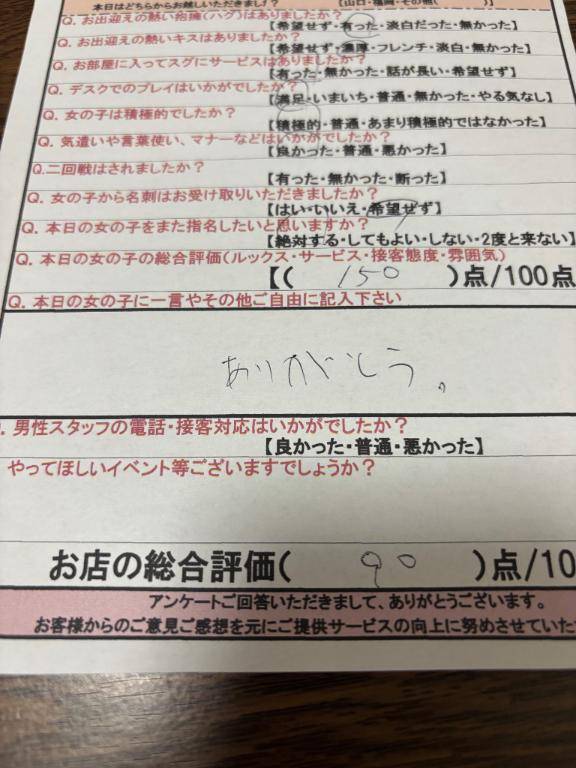 本日はどちらからお越しいただきましたか？ 【山口・福岡・その他( )】
Q. お出迎えの熱い抱擁(ハグ)はありましたか？
【希望せず・有った・淡白だった・無かった】
Q. お出迎えの熱いキスはありましたか？
【希望せず・濃厚・フレンチ・淡白・無かった】
Q. お部屋に入ってスグにサービスはありましたか？
【有った・無かった・話が長い・希望せず】
Q. デスクでのプレイはいかがでしたか？
【満足・いまいち・普通・無かった・やる気なし】
Q. 女の子は積極的でしたか？
【積極的・普通・あまり積極的ではなかった】
Q. 気遣いや言葉使い、マナーなどはいかがでしたか？
【良かった・普通・悪かった】
Q.二回戦はされましたか？
【有った・無かった・断った】
Q. 女の子から名刺はお受け取りいただきましたか？
【はい・いいえ・希望せず】
Q. 本日の女の子をまた指名したいと思いますか？
【絶対する・してもよい・しない・2度と来ない】
Q. 本日の女の子の総合評価(ルックス・サービス・接客態度・雰囲気)
【( 150 )点/100点
Q. 本日の女の子に一言やその他ご自由に記入下さい
ありがとう。
. 男性スタッフの電話・接客対応はいかがでしたか？
【良かった・普通・悪かった】
やってほしいイベント等ございますでしょうか？
お店の総合評価( 90 )点/10
アンケートご回答いただきまして、ありがとうございます。
お客様からのご意見ご感想を元にご提供サービスの向上に努めさせていた